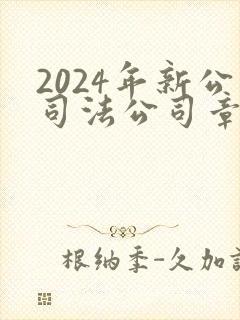 2024年新公
司法公司章
根纳季-久加